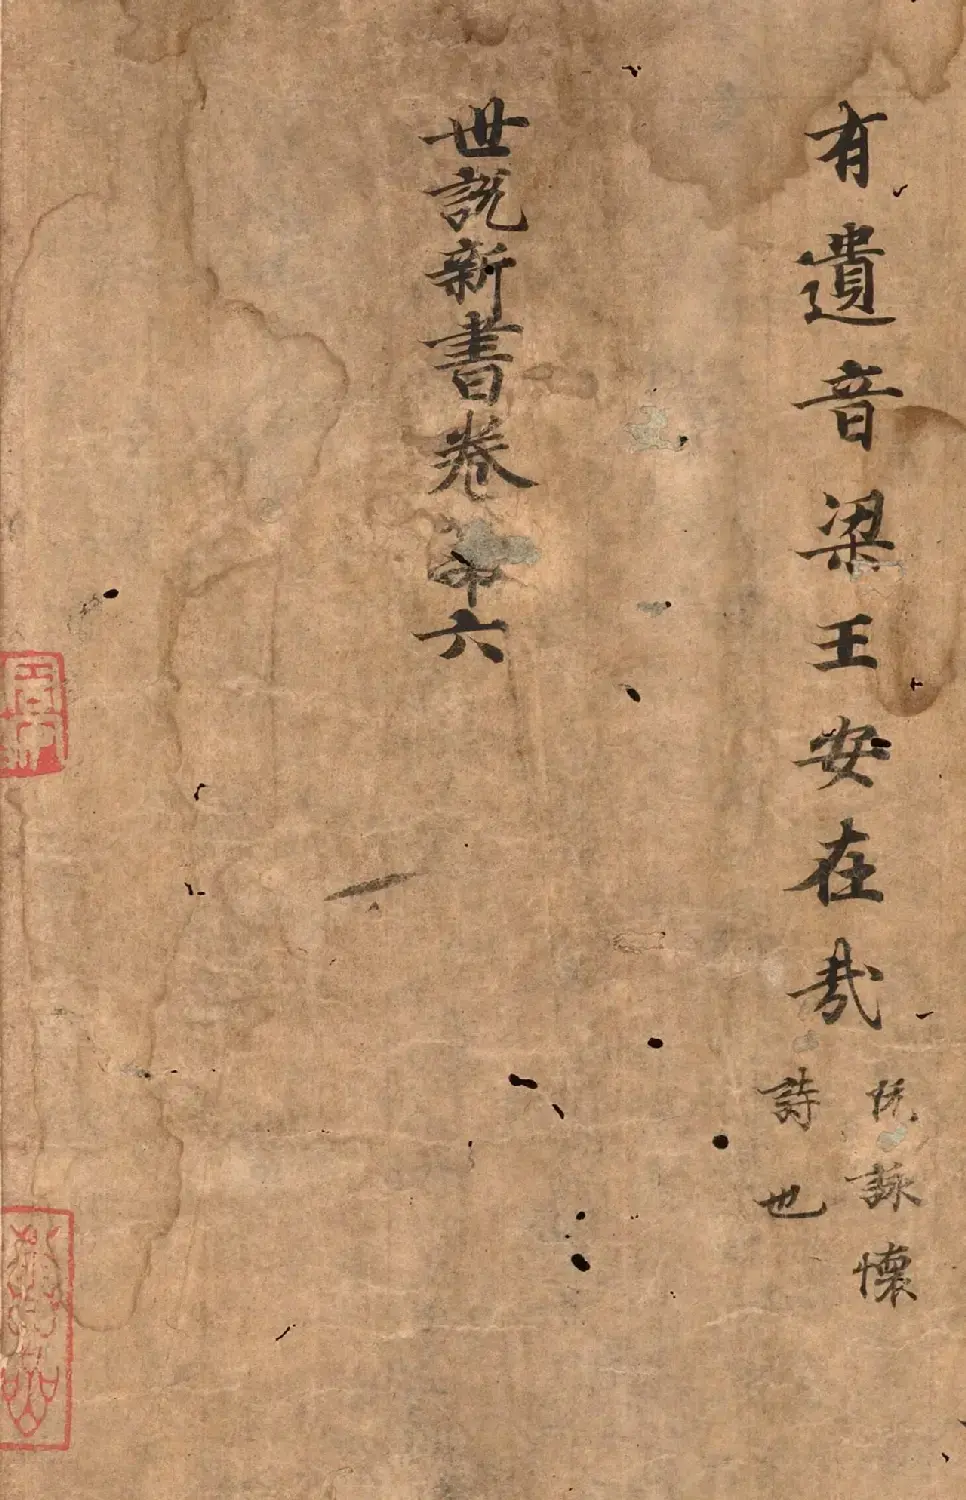 有遺音梁王安在哉
阮詠懷
詩也
世説新書卷第六